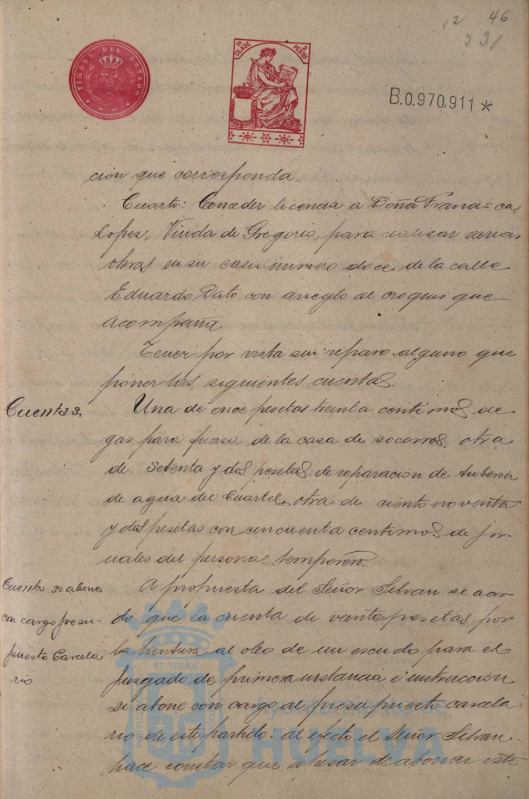 12 46
331
TIMBRE DEL ESTADO
CLASE PESETAS
B.0.970.911*
cion que corresponda.
Cuarto: Conceder licencia a Doña Francisca
Lopez, Viuda de Gregorio, para realizar varias
obras en su casa número doce de la calle
Eduardo Dato con arreglo al croquis que
acompaña.
Tener por vista sin reparo alguno que
poner las siguientes cuentas.
Cuentas.
Una de once pesetas treinta centimos de
gas para fuerza de la casa de socorros, otra
de setenta y dos pesetas de reparación de tuberia
de agua del Cuartel, otra de ciento noventa
y dos pesetas con cincuenta centimos de jor-
nales del personal temporero.
Cuenta se abone
con cargo presu-
puesto Carcela
rio
A propuesta del Señor Selvan se acor-
do que la cuenta de veinte pesetas por
la pintura al oleo de un escudo para el
Juzgado de primera instancia e instrucción
se abone con cargo al presupuesto carcela
rio de este partido: al efecto el Señor Selvan
hace constar que a pesar de abonar este
HUELVA